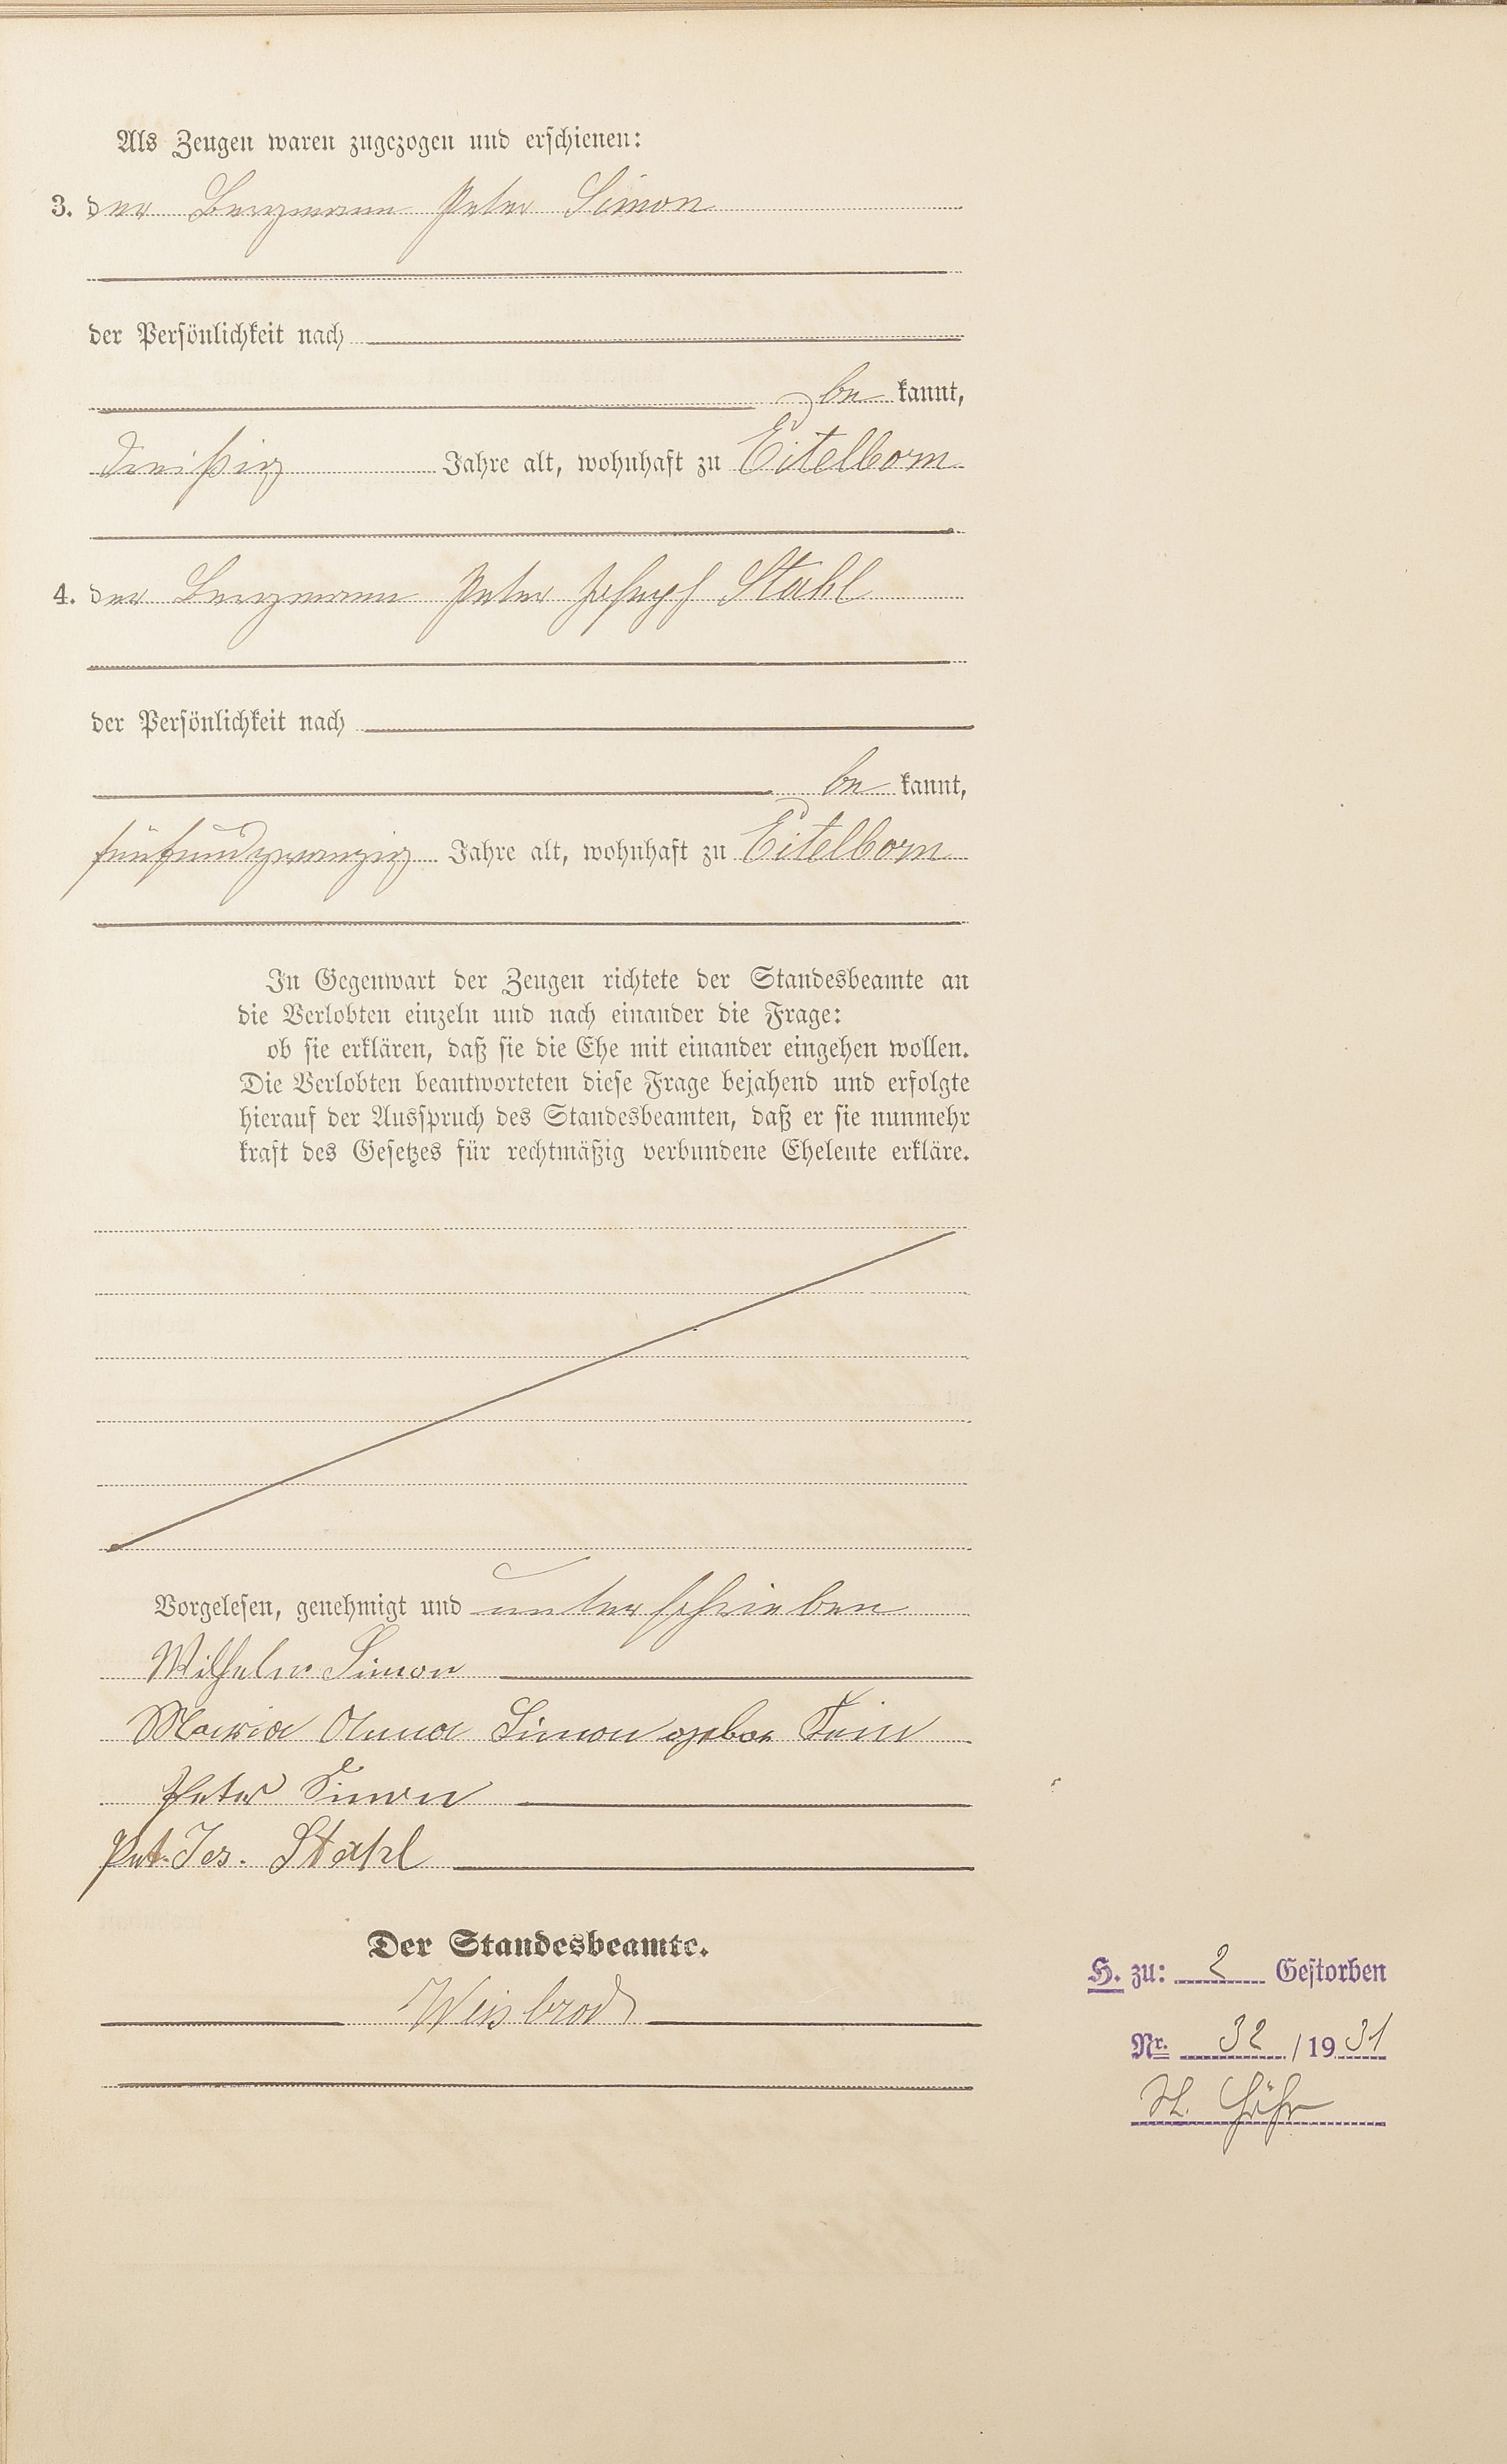 Als Zeugen waren zugezogen und erschienen:
3. der Bergmann Peter Simon
der Persönlichkeit nach
be kannt,
dreißig Jahre alt, wohnhaft zu Eitelborn
4. der Bergmann Peter Joseph Stahl
der Persönlichkeit nach
be kannt,
fünfundzwanzig Jahre alt, wohnhaft zu Eitelborn
In Gegenwart der Zeugen richtete der Standesbeamte an
die Verlobten einzeln und nach einander die Frage:
ob sie erklären, daß sie die Ehe mit einander eingehen wollen.
Die Verlobten beantworteten diese Frage bejahend und erfolgte
hierauf der Ausspruch des Standesbeamten, daß er sie nunmehr
kraft des Gesetzes für rechtmäßig verbundene Eheleute erkläre.
Vorgelesen, genehmigt und unterschrieben
Wilhelm Simon
Maria Anna Simon gebor
Peter Simon
Pet. Jos. Stahl
Der Standesbeamte.
Weisbrod
H. zu: 2 Gestorben
Nr. 32 / 19 31
St. Höhr